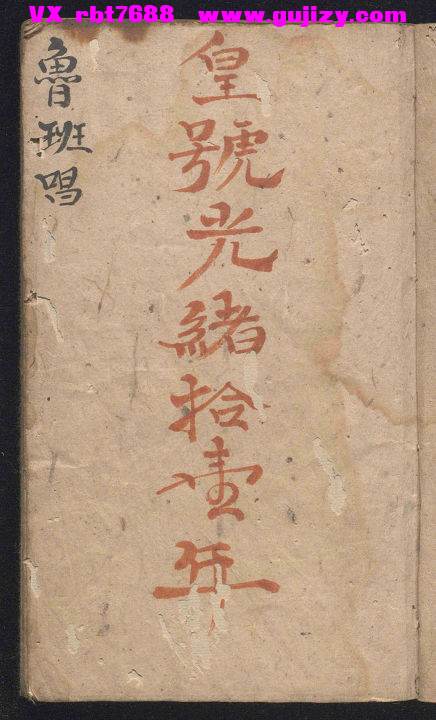 VX rbt7688 www.gujizy.com
皇號光緒拾壹年
魯班唱